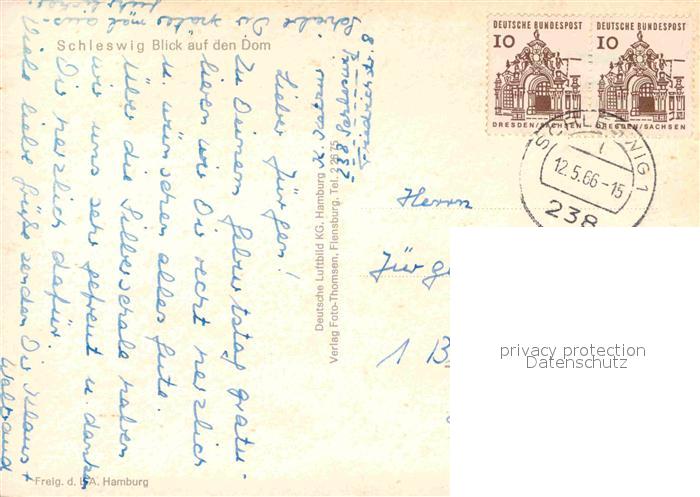 Schleswig Blick auf den Dom
Lieber Jürgen!
Zu Deinem Geburtstag gratu-
lieren wir Dir recht herzlich
u. wünschen alles Gute.
Über die Silberschale haben
wir uns sehr gefreut u. danken
Dir herzlich dafür.
Viele liebe Grüße senden Dir Klaus +
Waltraud
Schreibe Dir später mal aus-
führlicher.
238 Schleswig
Deutsche Luftbild KG. Hamburg
Verlag Foto-Thomsen, Flensburg. Tel. 2 2675
Freig. d. L.A. Hamburg
DEUTSCHE BUNDESPOST
10
DRESDEN/SACHSEN
DEUTSCHE BUNDESPOST
10
DRESDEN/SACHSEN
SCHLESWIG 1
12.5.66-15
238
Herrn
Jürg
1 B
privacy protection
Datenschutz